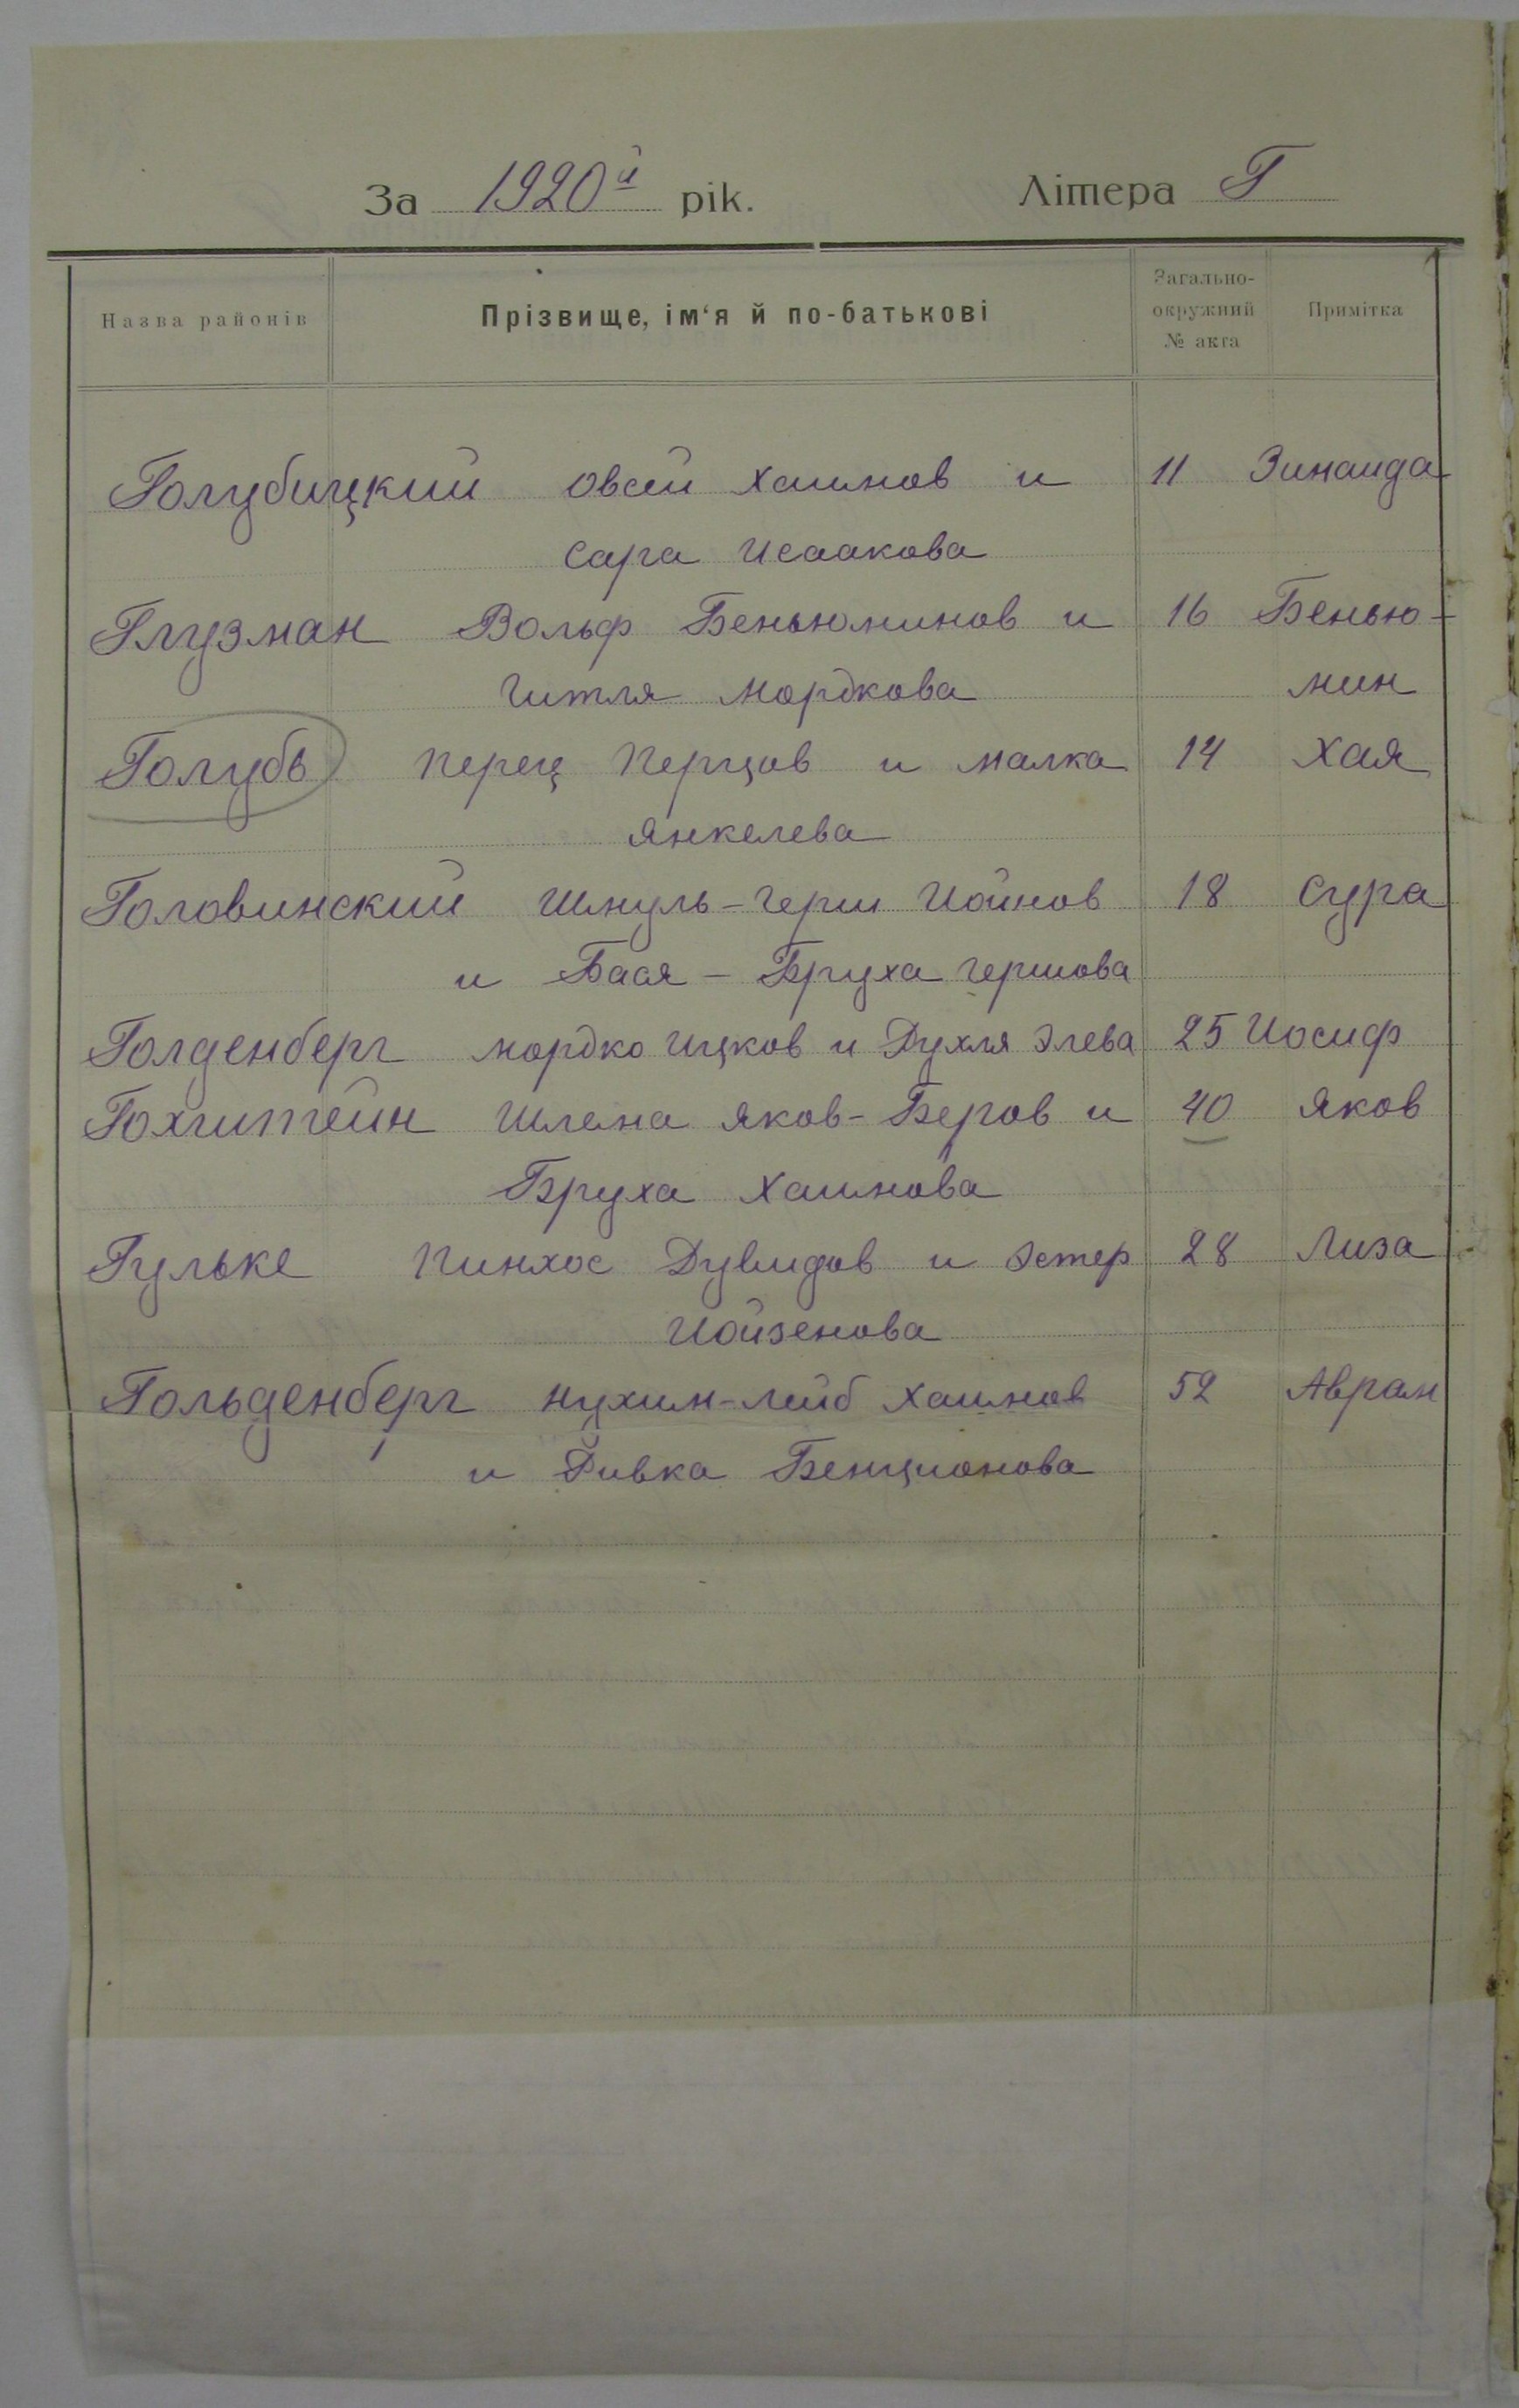 За 1920й рік. Літера Г
Назва районів Прізвище, ім‘я й по-батькові Загально-окружний № акта Примітка
Голубицкий Овсей Хаимов и 11 Зинаида
Сара Исаакова
Глузман Вольф Беньюминов и 16 Бенью-
Гитля Мордкова мин
Голубь Перец Перцов и Малка 14 Хая
Янкелева
Головинский Шмуль-Герш Иойнов 18 Сура
и Бася-Бруха Гершова
Голденберг Мордко Ицков и Духля Элева 25 Иосиф
Гохштейн Шлема Яков-Беров и 40 Яков
Бруха Хаимова
Гульке Пинхос Дувидов и Эстер 28 Лиза
Иойзенова
Гольденберг Нухим-Лейб Хаимов 52 Аврам
и Ривка Бенционова